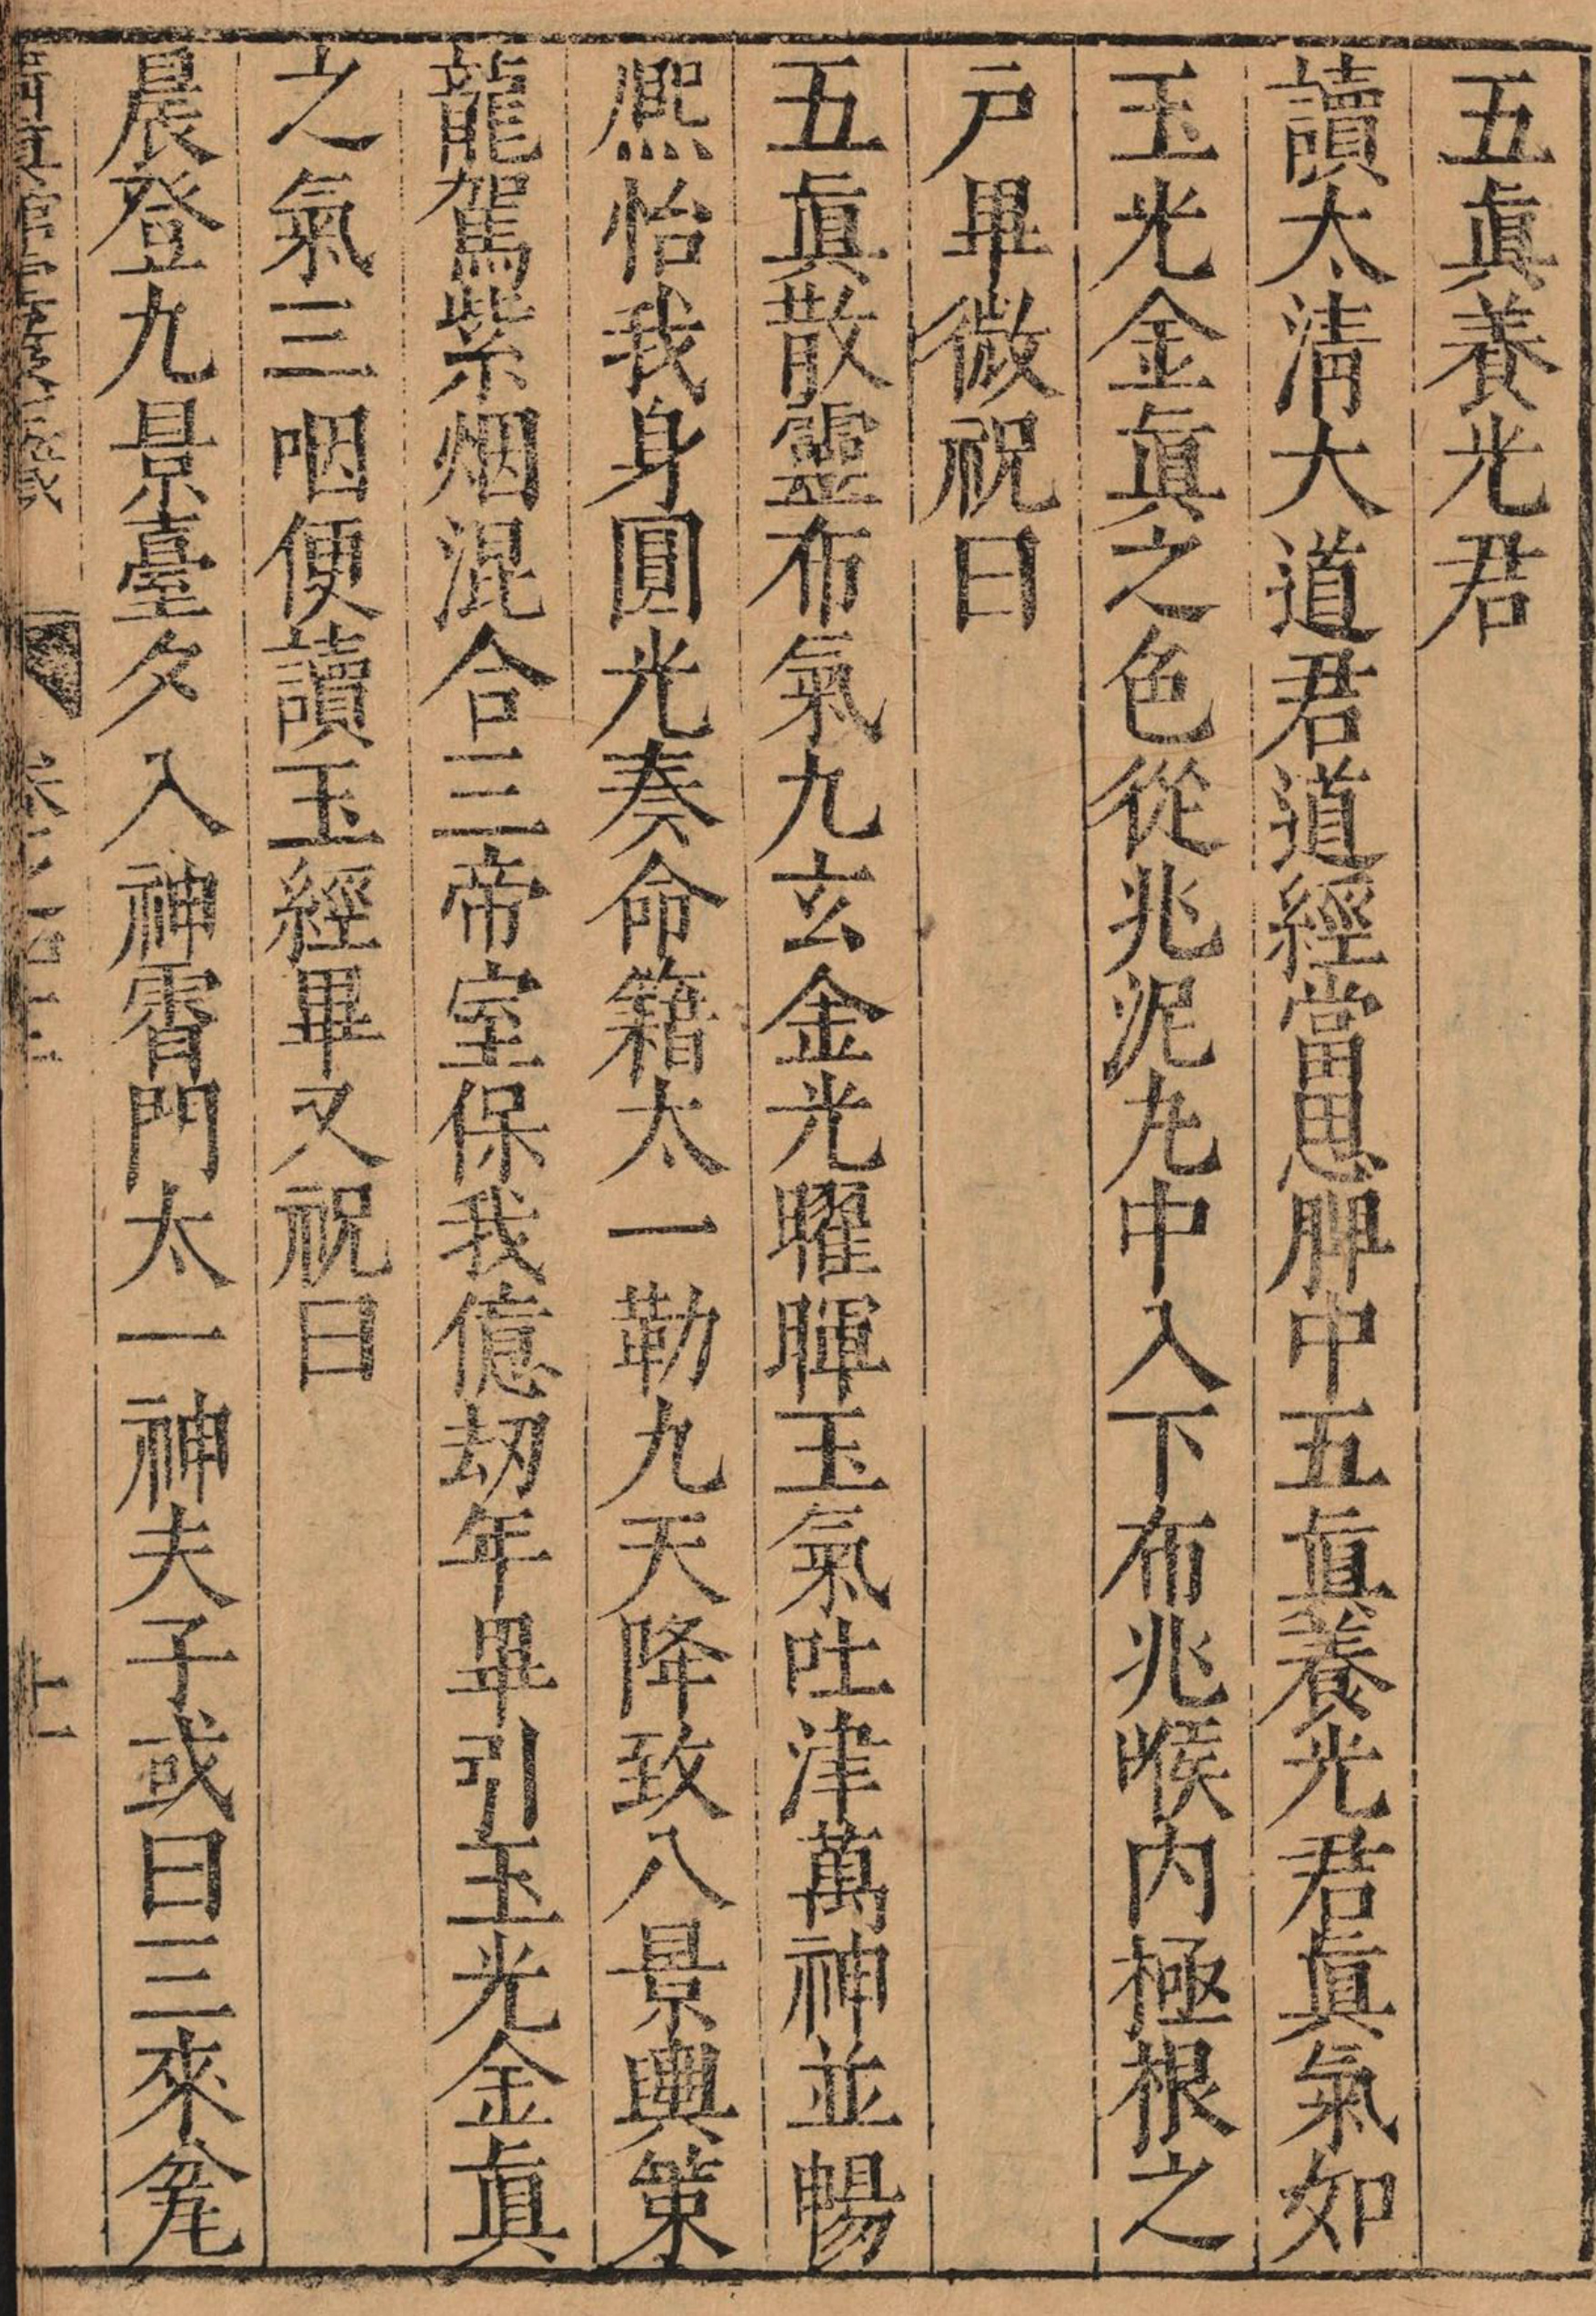 五眞養光君
讀太清大道君道經當思脾中五眞養光君眞氣如
玉光金眞之色從兆泥九中入下布兆喉内極根之
戸畢微祝曰
五眞散靈布氣九玄金光曜暉玉氣吐津萬神並暢
熈怡我身圓光奏命籍太一勒九天降致八景輿策
龍駕紫烟混合三帝室保我億劫年畢引玉光金眞
之氣三咽便讀玉經畢又祝曰
晨登九景臺夕入神霄門太一神夫子或曰三來